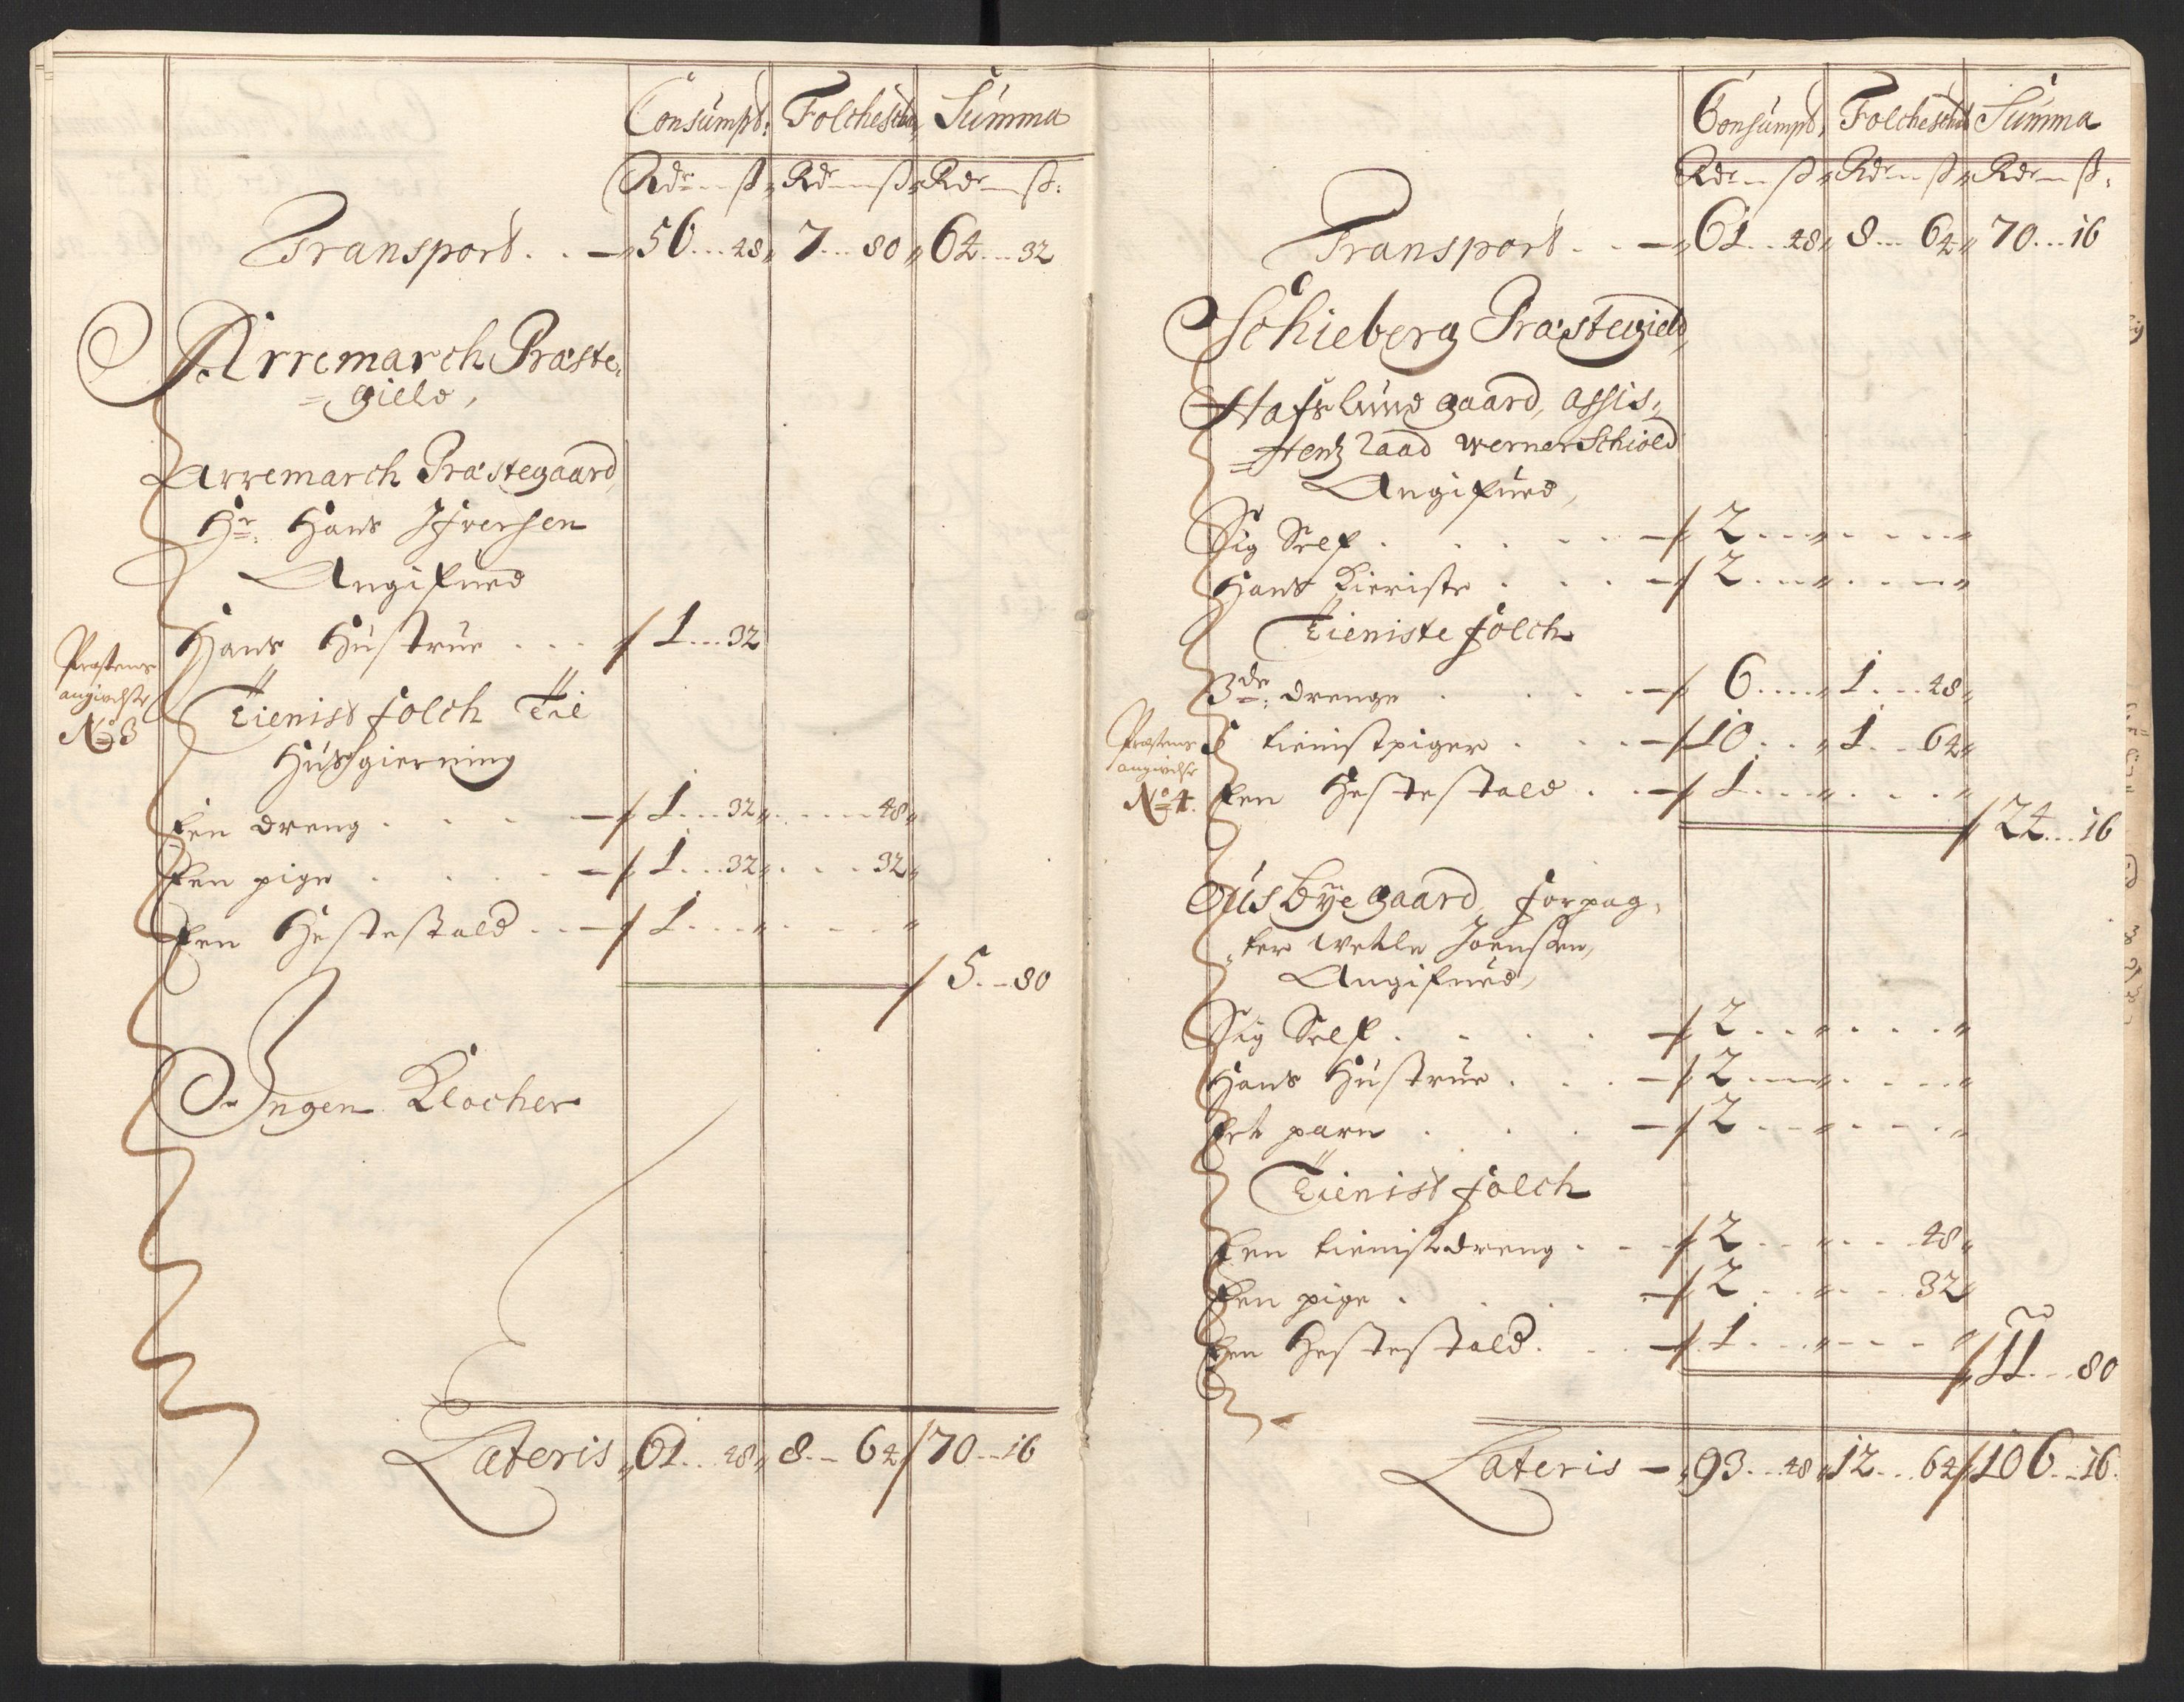 Consumpt: Folcheschat, Summa
Rdr---ß„ Rdr---ß„ Rdr---ß:
Transport. . —„ 56...48„ 7...80„ 64...32
Arremarch Præste,
=gield,
Arremarch Præstegaard,
Hr: Hans Ifversen
Angifued
Hans Hustrue . . . 1...32
Præstens
angivelse
No 3
Tienist folch Til
Huusgierning
Een dreng . . . . — 1...32„ . . . 48„
Een pige . . . . — 1...32„ . . . 32„
Een Hestestald . . . — 1...„ . . . „
5.–80
Ingen Klocher
Lateris „61...48„ 8.–64 70...16
Consumpt, Folcheschat Summa
Rdr---ß„ Rdr---ß„ Rdr---ß:
Transport. . —„61...48„ 8...64„ 70...16
Schieberg Præstegield,
Hafslund gaard, assis„
=tentz Raad Werner Schiold
Angifued,
Sig Self . . . . . — 2...„ . . . „
Hans Kieriste . . . — 2...„ . . . „
Tieniste folch
3de: drenge . . . — 6...„ 1...48„
Præstens
angivelse
No 4.
5 tienistpiger . . . — 10...„ 1...64„
Een Hestestald . . — 1...„ . . . „
24...16
Ousbye gaard, forpag„
„ter Wetle Joensen,
Angifued,
Sig Self . . . . . — 2...„ . . . „
Hans Hustrue . . . — 2...„ . . . „
Eet parn . . . — 2...„ . . . „
Tienist folch
Een tienistdreng . . — 2...„ . . 48„
Een pige . . . — 2...„ . . 32„
Een Hestestald . . . — 1...„ . . . „
11...80
Lateris —„93...48„ 12...64 106...16.